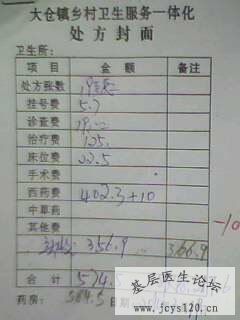 大仓镇乡村卫生服务一体化
处方封面
卫生所:
项目 金额 备注
处方张数
挂号费 5.
诊查费 19.
治疗费 125.
床位费 22.5
手术费
西药费 402.3+10
中草药
其他费 -10
356.9 356.9
合计 574.5
药房: 584.5 日期
基层医生论坛
www.jcys120.cn